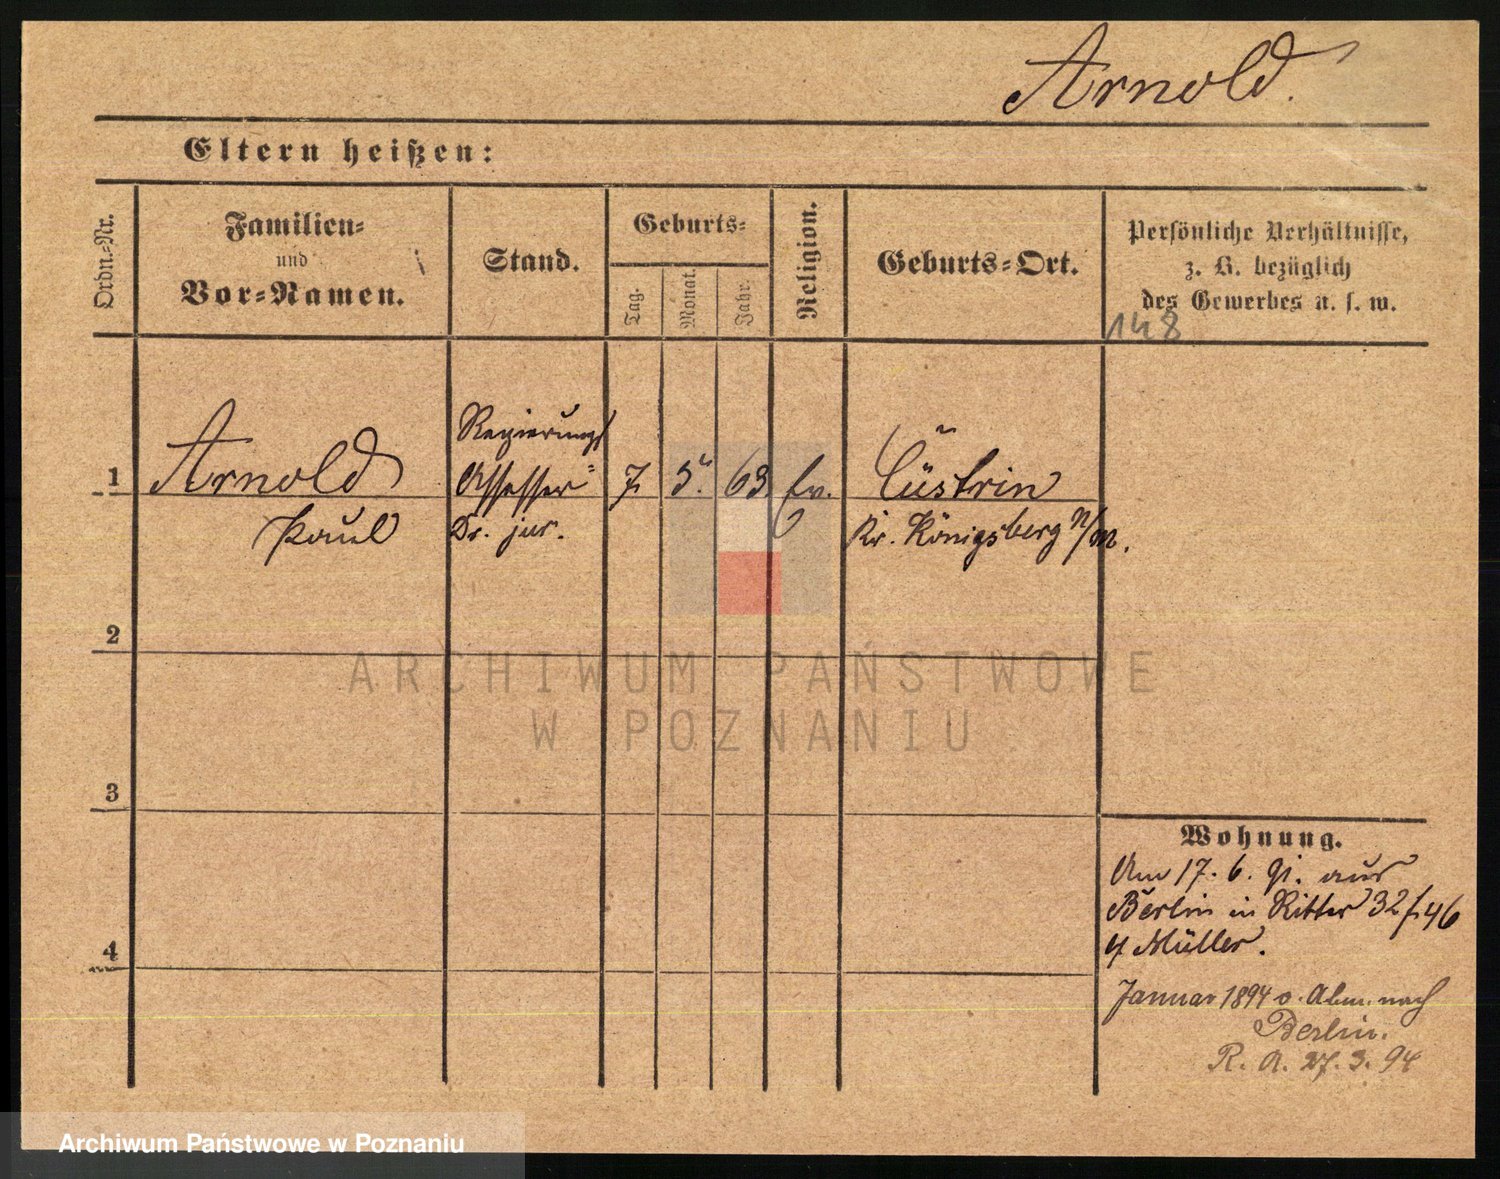 Arnold.
Eltern heißen:
Ordn.-Nr.
Familien-
und
Vor-Namen.
Stand.
Geburts-
Tag.
Monat.
Jahr.
Religion.
Geburts-Ort.
Persönliche Verhältnisse,
z. B. bezüglich
des Gewerbes u. s. w.
148
1 Arnold Regierungs Assessor 7. 3. 63 Ev. Cüstrin
Paul Dr. jur. Kr. Königsberg n/m.
2
3
4
Wohnung.
Am 17. 6. 91. aus
Berlin in Ritter 32 f. 46
Müller.
Januar 1894 o. Abm. nach
Berlin.
R. A. 27. 3. 94
ARCHIWUM PAŃSTWOWE
W POZNANIU
Archiwum Państwowe w Poznaniu